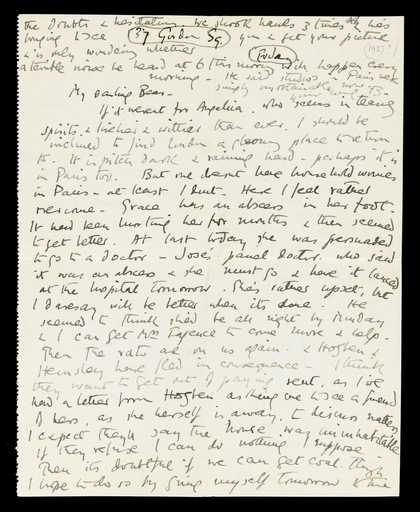 the doubts & hesitations. We shook hands 3 times & he's
longing to see 37 Gordon Sq. you & get your picture
& is only wondering whether Friday
a terrible noise he heard at 6 this morning will happen every
morning — He said studios in Paris are
simply unobtainable now
My darling Bear —
If it weren't for Angelica, who seems in teasing
spirits, & livelier & wittier than ever, I should be
inclined to find London a gloomy place to return
to. It is pitch dark & raining hard — perhaps it is
in Paris too. But one doesn't have household worries
in Paris — at least I don't. Here I feel rather
tiresome. Grace has an abscess in her foot.
It had been hurting her for months & then seemed
to get better. At last today she was persuaded
to go to a doctor — Jose's panel doctor, who said
it was an abscess & she must go & have it lanced
at the hospital tomorrow. She's rather upset, but
I daresay will be better when it's done. He
seemed to think she'd be all right by Monday
& I can get Mrs to come more & help.
Then the rats are on us again. & Hogben &
Hemsley have fled in consequence — I think
they want to get out of paying rent, as I've
had a letter from Hogben asking me to see a friend
of hers, as she herself is away, to discuss matters
I expect they'll say the house was uninhabitable
If they refuse I can do nothing I suppose.
Then it's doubtful if we can get coal, though
I hope to do so by going myself tomorrow &